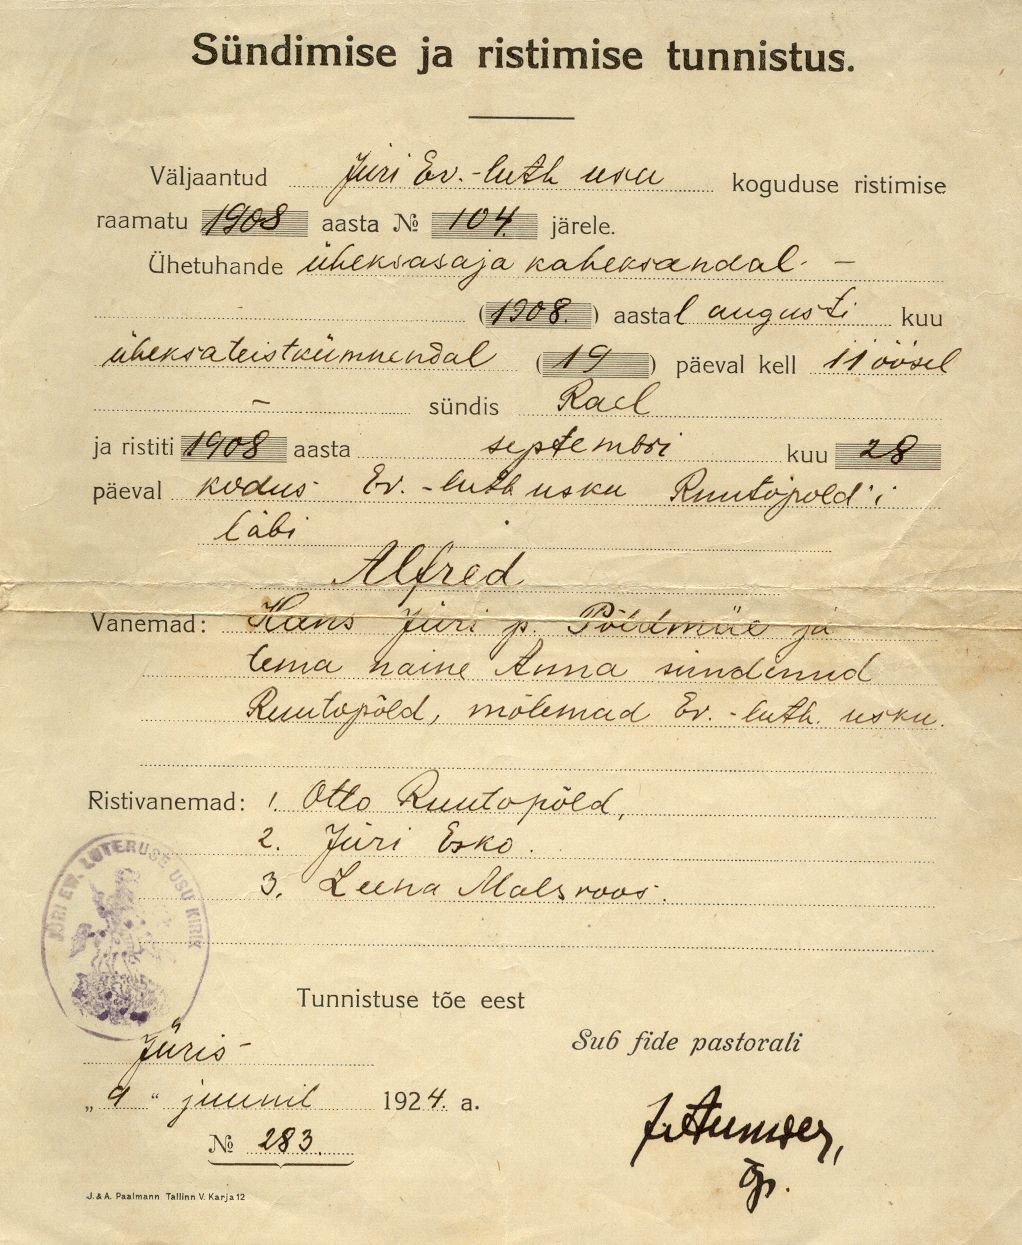 Sündimise ja ristimise tunnistus.
Väljaantud Jüri Ev.-luth usu koguduse ristimise
raamatu 1908 aasta № 104. järele.
Ühetuhande üheksasaja kaheksandal -
(1908.) aastal augusti kuu
üheksateistkümnendal (19) päeval kell 11 öösel
- sündis Rael
ja ristiti 1908 aasta septembri kuu 28
päeval kodus Ev.-luth usku Ruutopold'i
läbi
Alfred
Vanemad: Hans Jüri p. Põldmäe ja
tema naine Anna sündinud
Ruutopõld, mõlemad Ev.-luth. usku.
Ristivanemad: 1. Otto Ruutopõld,
2. Jüri Esko.
3. Leena Malsroos.
JÜRI EW. LUTERUSE USU KIRIK
Tunnistuse tõe eest
Jüris
Sub fide pastorali
„9" juunil 1924. a.
№ 283.
õp.
J. & A. Paalmann Tallinn V. Karja 12